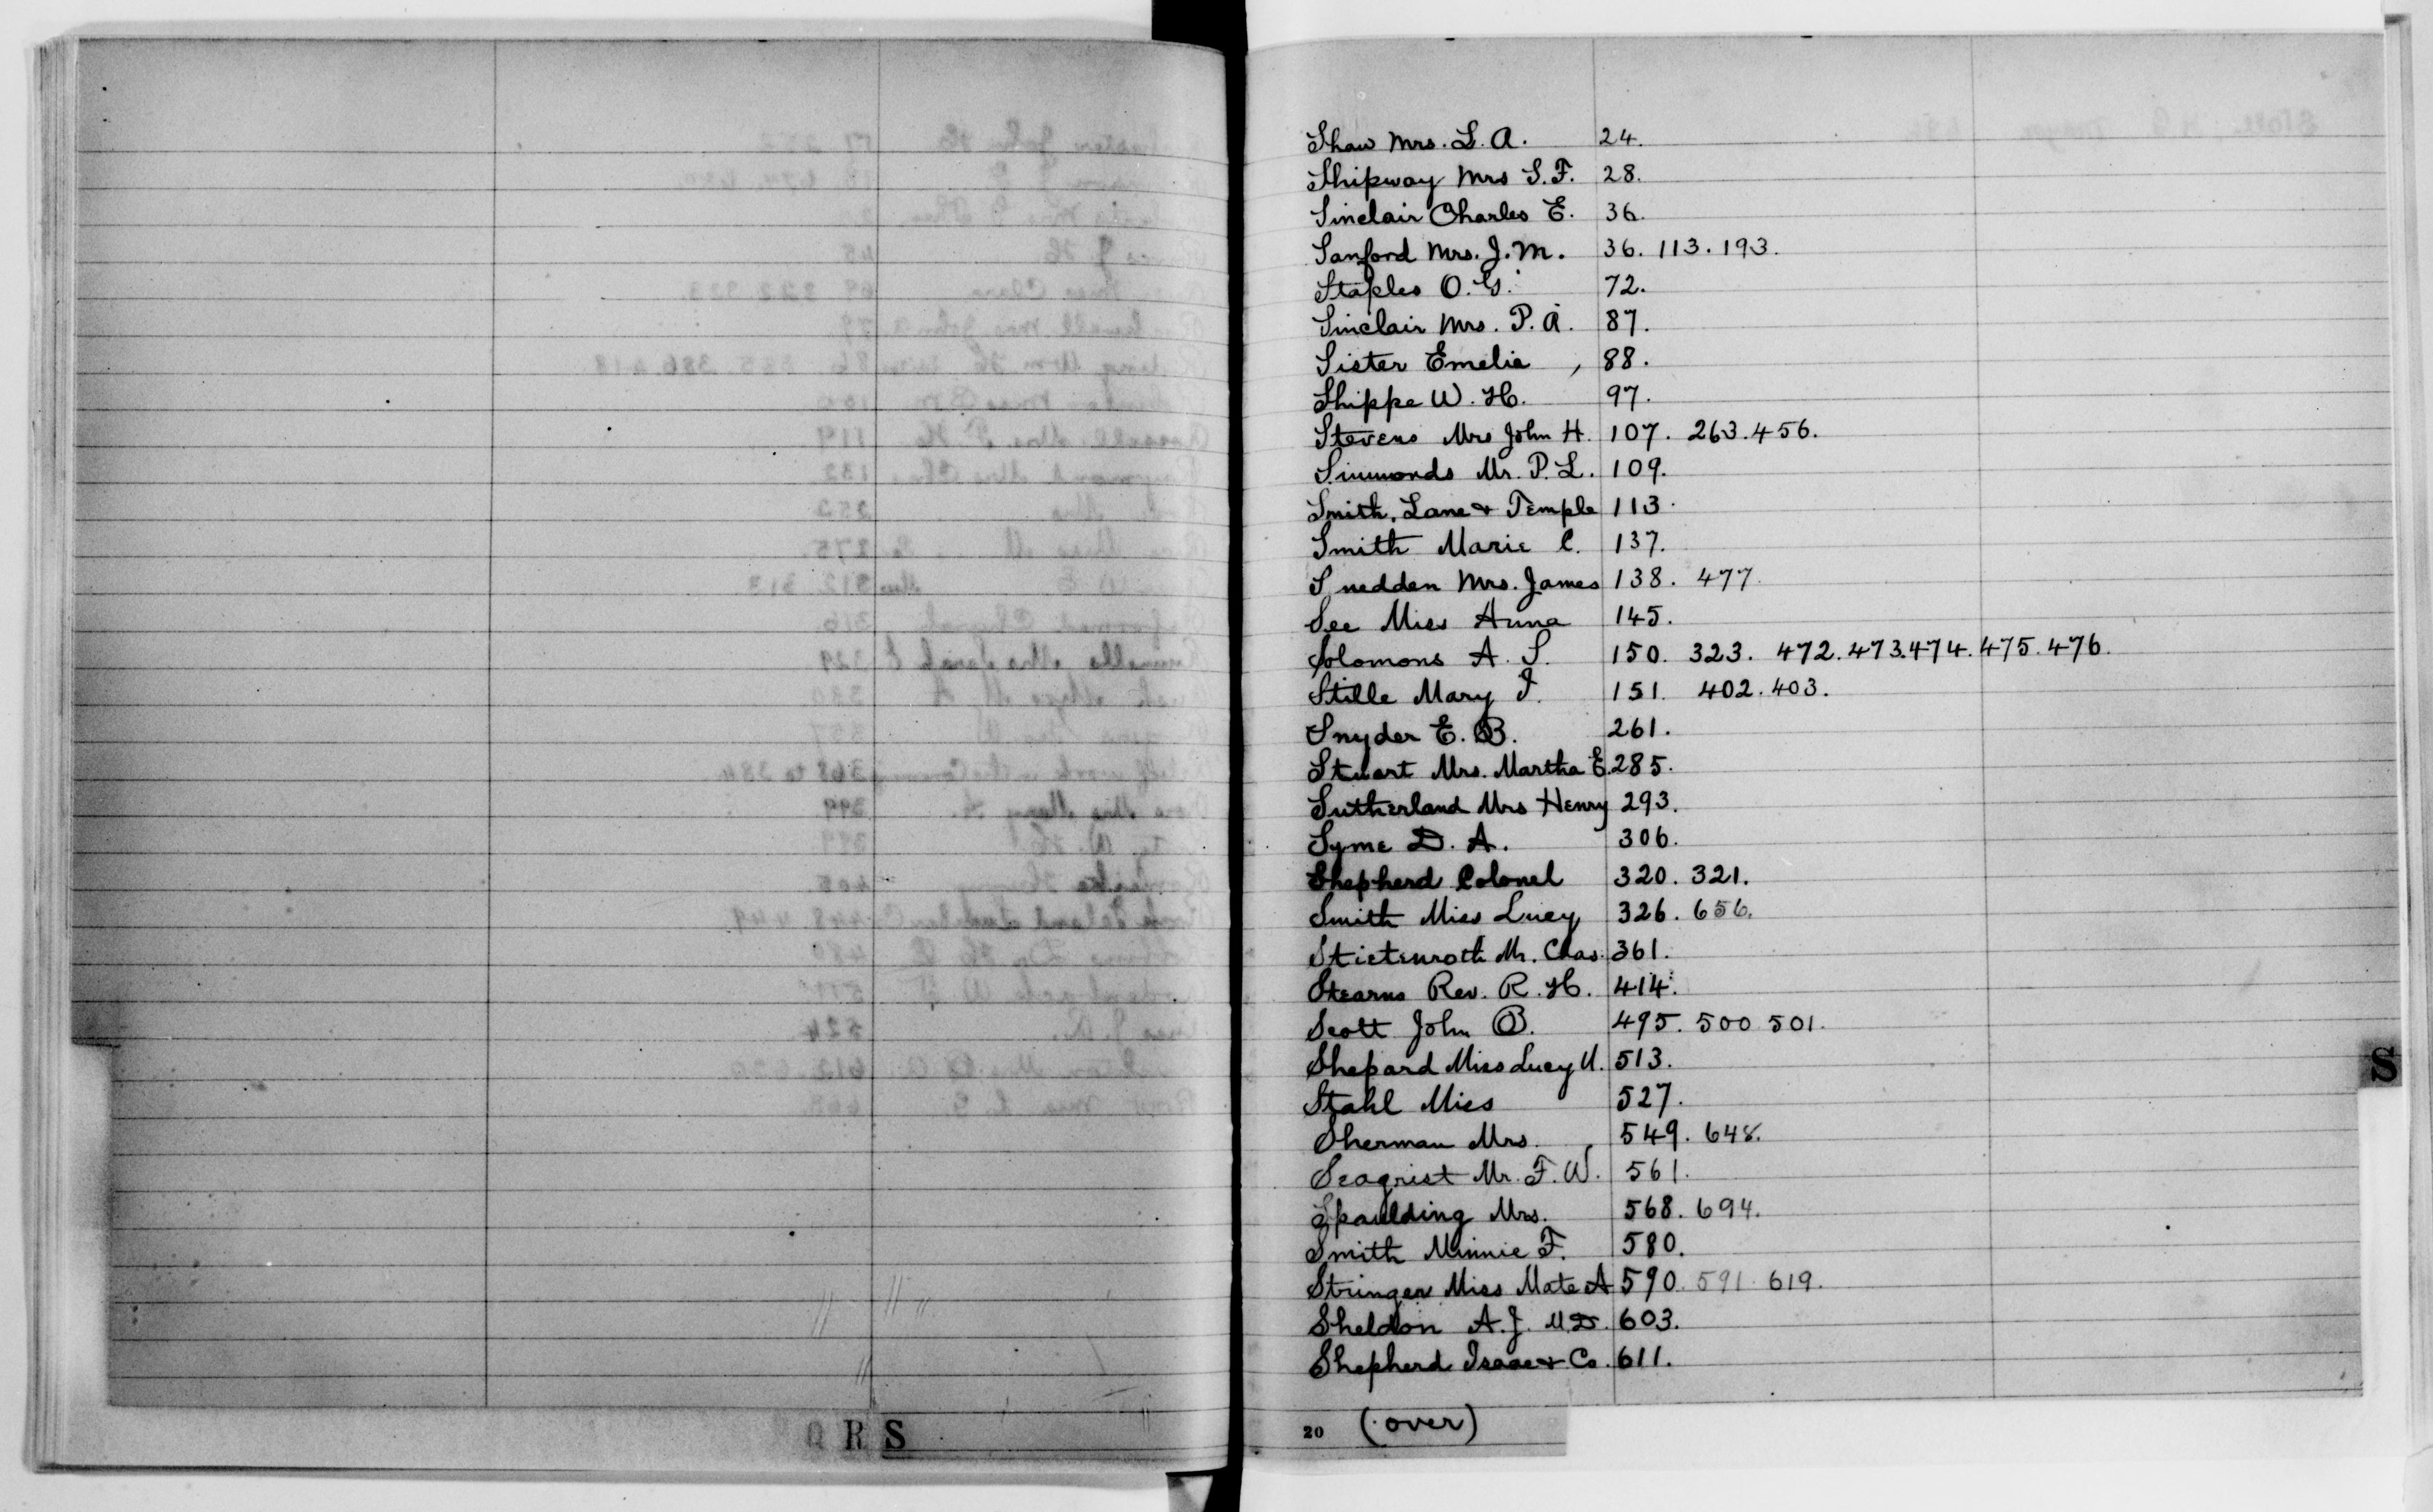 Shaw Mrs. L. A. 24.
Shipway Mrs S. F. 28.
Sinclair Charles E. 36.
Sanford Mrs. J. M. 36. 113. 193.
Staples O. G. 72.
Sinclair Mrs. P. A. 87.
Sister Emelie , 88.
Shippe W. H. 97.
Stevens Mrs John H. 107. 263. 456.
Simmonds Mr. P. L. 109.
Smith, Lane & Temple 113.
Smith Marie C. 137.
Snedden Mrs. James 138. 477.
See Miss Anna 145.
Solomons A. S. 150. 323. 472. 473. 474. 475. 476.
Stille Mary I. 151. 402. 403.
Snyder E. B. 261.
Stuart Mrs. Martha E. 285.
Sutherland Mrs Henry 293.
Syme D. A. 306.
Shepherd Colonel 320. 321.
Smith Miss Lucy 326. 656.
Stietenroth Mr. Chas. 361.
Stearns Rev. R. H. 414.
Scott John B. 495. 500 501.
Shepard Miss Lucy U. 513.
Stahl Miss 527.
Sherman Mrs. 549. 648.
Seagrist Mr. F. W. 561.
Spaulding Mrs. 568. 694.
Smith Minnie F. 580.
Stringer Miss Mate A 590. 591. 619.
Sheldon A. J. M.D. 603.
Shepherd Isaac & Co. 611.
S
Q R S
20 (over)